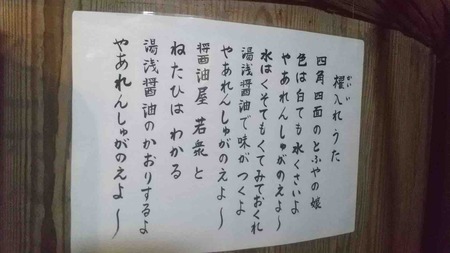 櫂入れうた
かい い
四角四面のとふやの娘
色は白ても水くさいよ
やあれんしゅがのえよ〜
水はくそてもくてみておくれ
湯浅醤油で味がつくよ
やあれんしゅがのえよ〜
醤油屋 若衆と
ねたひは わかる
湯浅醤油のかおりするよ
やあれんしゅがのえよ〜